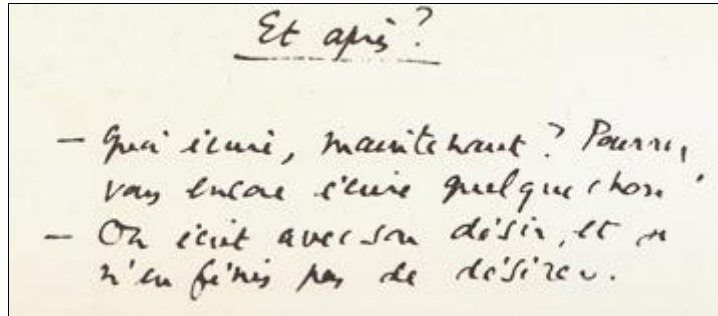 Et après?
— Quoi écrire, maintenant? Pourrez
vous encore écrire quelque chose
— On écrit avec son désir, et je
n'en finis pas de désirer.